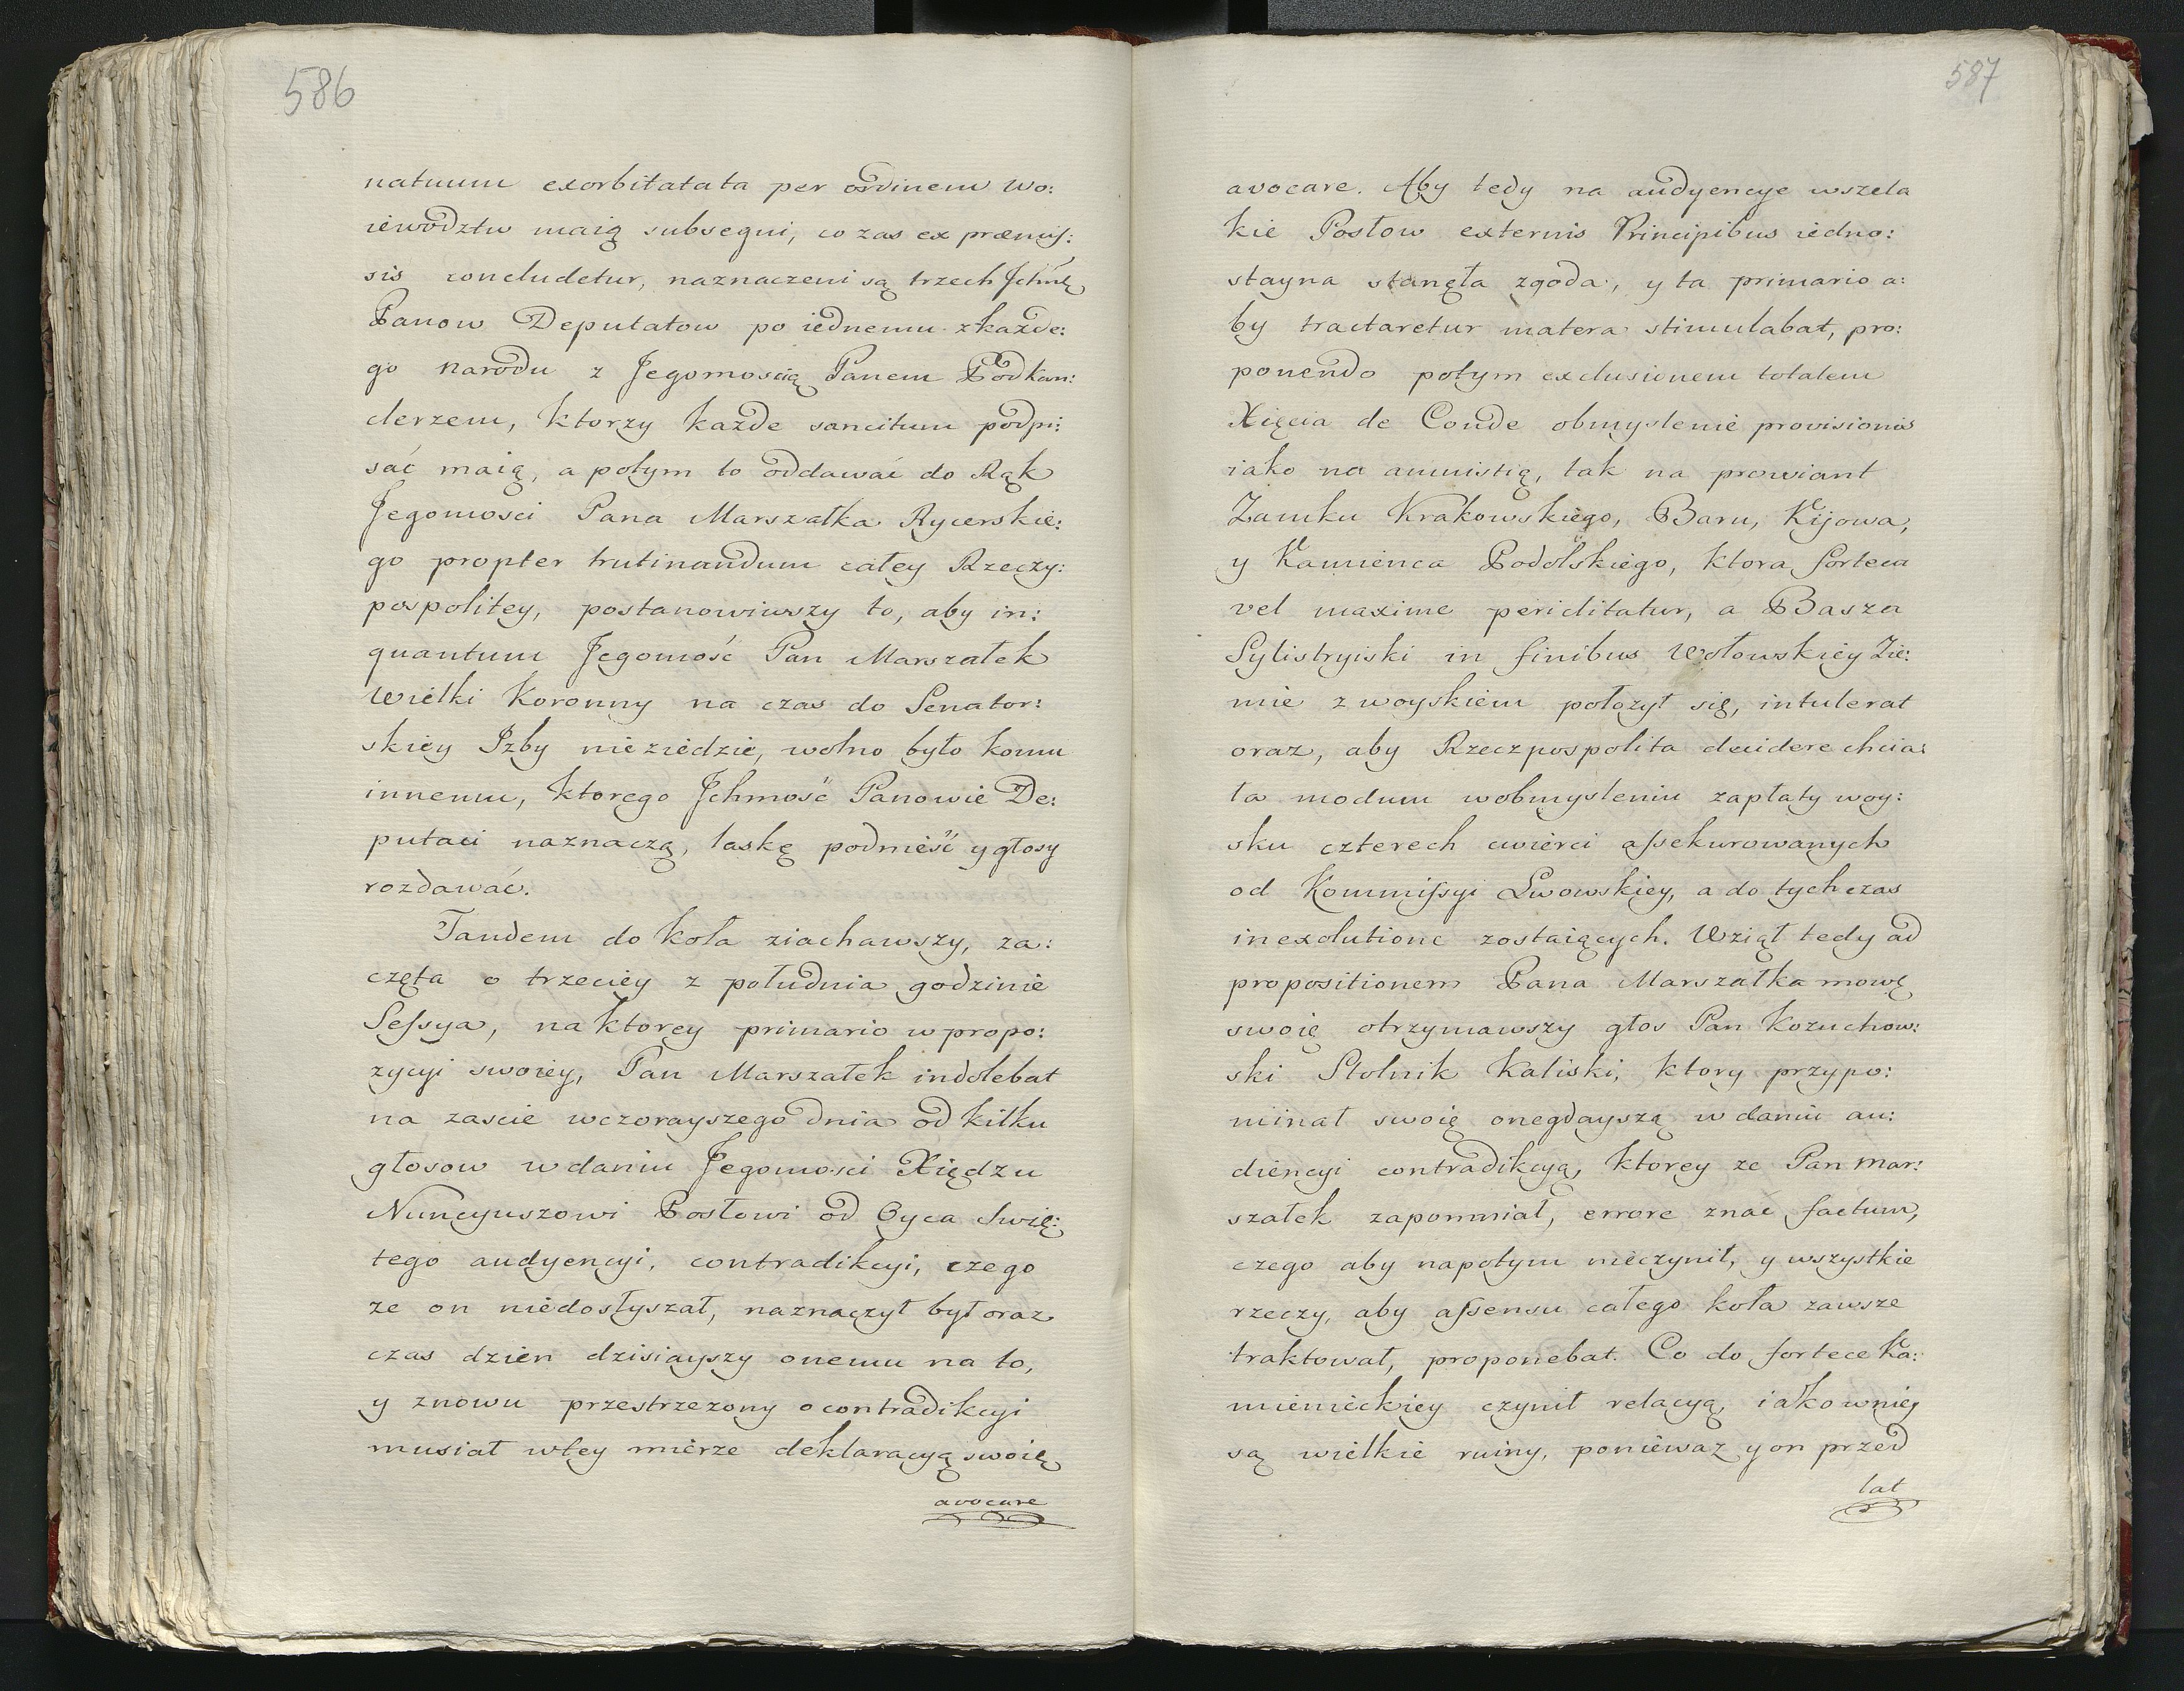 586
natuum exorbitatata per ordinem Wo:
iewodztw maią subsequi, co zas ex præmis:
sis concludetur, naznaczeni są trzech Jchmć
Panow Deputatow po iednemu z każde:
go narodu z Jegomoscią Panem Podkan:
clerzem, ktorzy każde sancitum podpi:
sać maią, a potym to oddawać do Rąk
Jegomości Pana Marszałka Rycerskie:
go propter trutinandum całey Rzeczy:
pospolitey, postanowiwszy to, aby in:
quantum Jegomość Pan Marszałek
Wielki Koronny na czas do Senator:
skiey Izby nieziedzie, wolno było komu
innemu, ktorego Jchmość Panowie De:
putaci naznaczą, laskę podnieść y głosy
rozdawać.
Tandem do koła ziachawszy, za:
częta o trzeciey z południa godzinie
Sessya, na ktorey primario w propo:
zycyi swoiey, Pan Marszałek indolebat
na zascie wczorayszego dnia od kilku
głosow w daniu Jegomosci Xiędzu
Nuncyuszowi Posłowi od Oyca Swię:
tego audyencyi, contradikcyi, czego
ze on niedosłyszał, naznaczył był oraz
czas dzien dzisiayszy onemu na to,
y znowu przestrzezony o contradikcyi
musiał w tey mierze deklaracyą swoię
avocare
587
avocare. Aby tedy na audyencye wszela
kie Posłow externis Principibus iedno:
stayna stanęła zgoda, y ta primario a:
by tractaretur matera stimulabat, pro:
ponendo potym exclusionem totalem
Xięcia de Conde obmyslenie provisionis
iako na amnistią, tak na prowiant
Zamku Krakowskiego, Baru, Kijowa,
y Kamienca Podolskiego, ktora forteca
vel maxime periclitatur, a Basza
Sylistryiski in finibus Wołowskiey Zie:
mie z woyskiem położył się, intulerat
oraz, aby Rzeczpospolita decidere chcia:
ła modum w obmysleniu zapłaty woy:
sku czterech cwierci assekurowanych
od Kommissyi Lwowskiey, a do tych czas
in exolutione zostaiących. Wziął tedy ad
propositionem Pana Marszałka mowę
swoię otrzymawszy głos Pan Kozuchow:
ski Stolnik Kaliski, ktory przypo:
minał swoię onegdayszą w daniu au:
diencyi contradikcyą, ktorey ze Pan Mar:
szałek zapomniał, errore znać factum,
czego aby napotym nieczynił, y wszystkie
rzeczy, aby assensu całego koła zawsze
traktował, proponebat. Co do fortece Ka:
mienieckiey czynił relacyą, iako w niey
są wielkie ruiny, poniewaz y on przed
lat